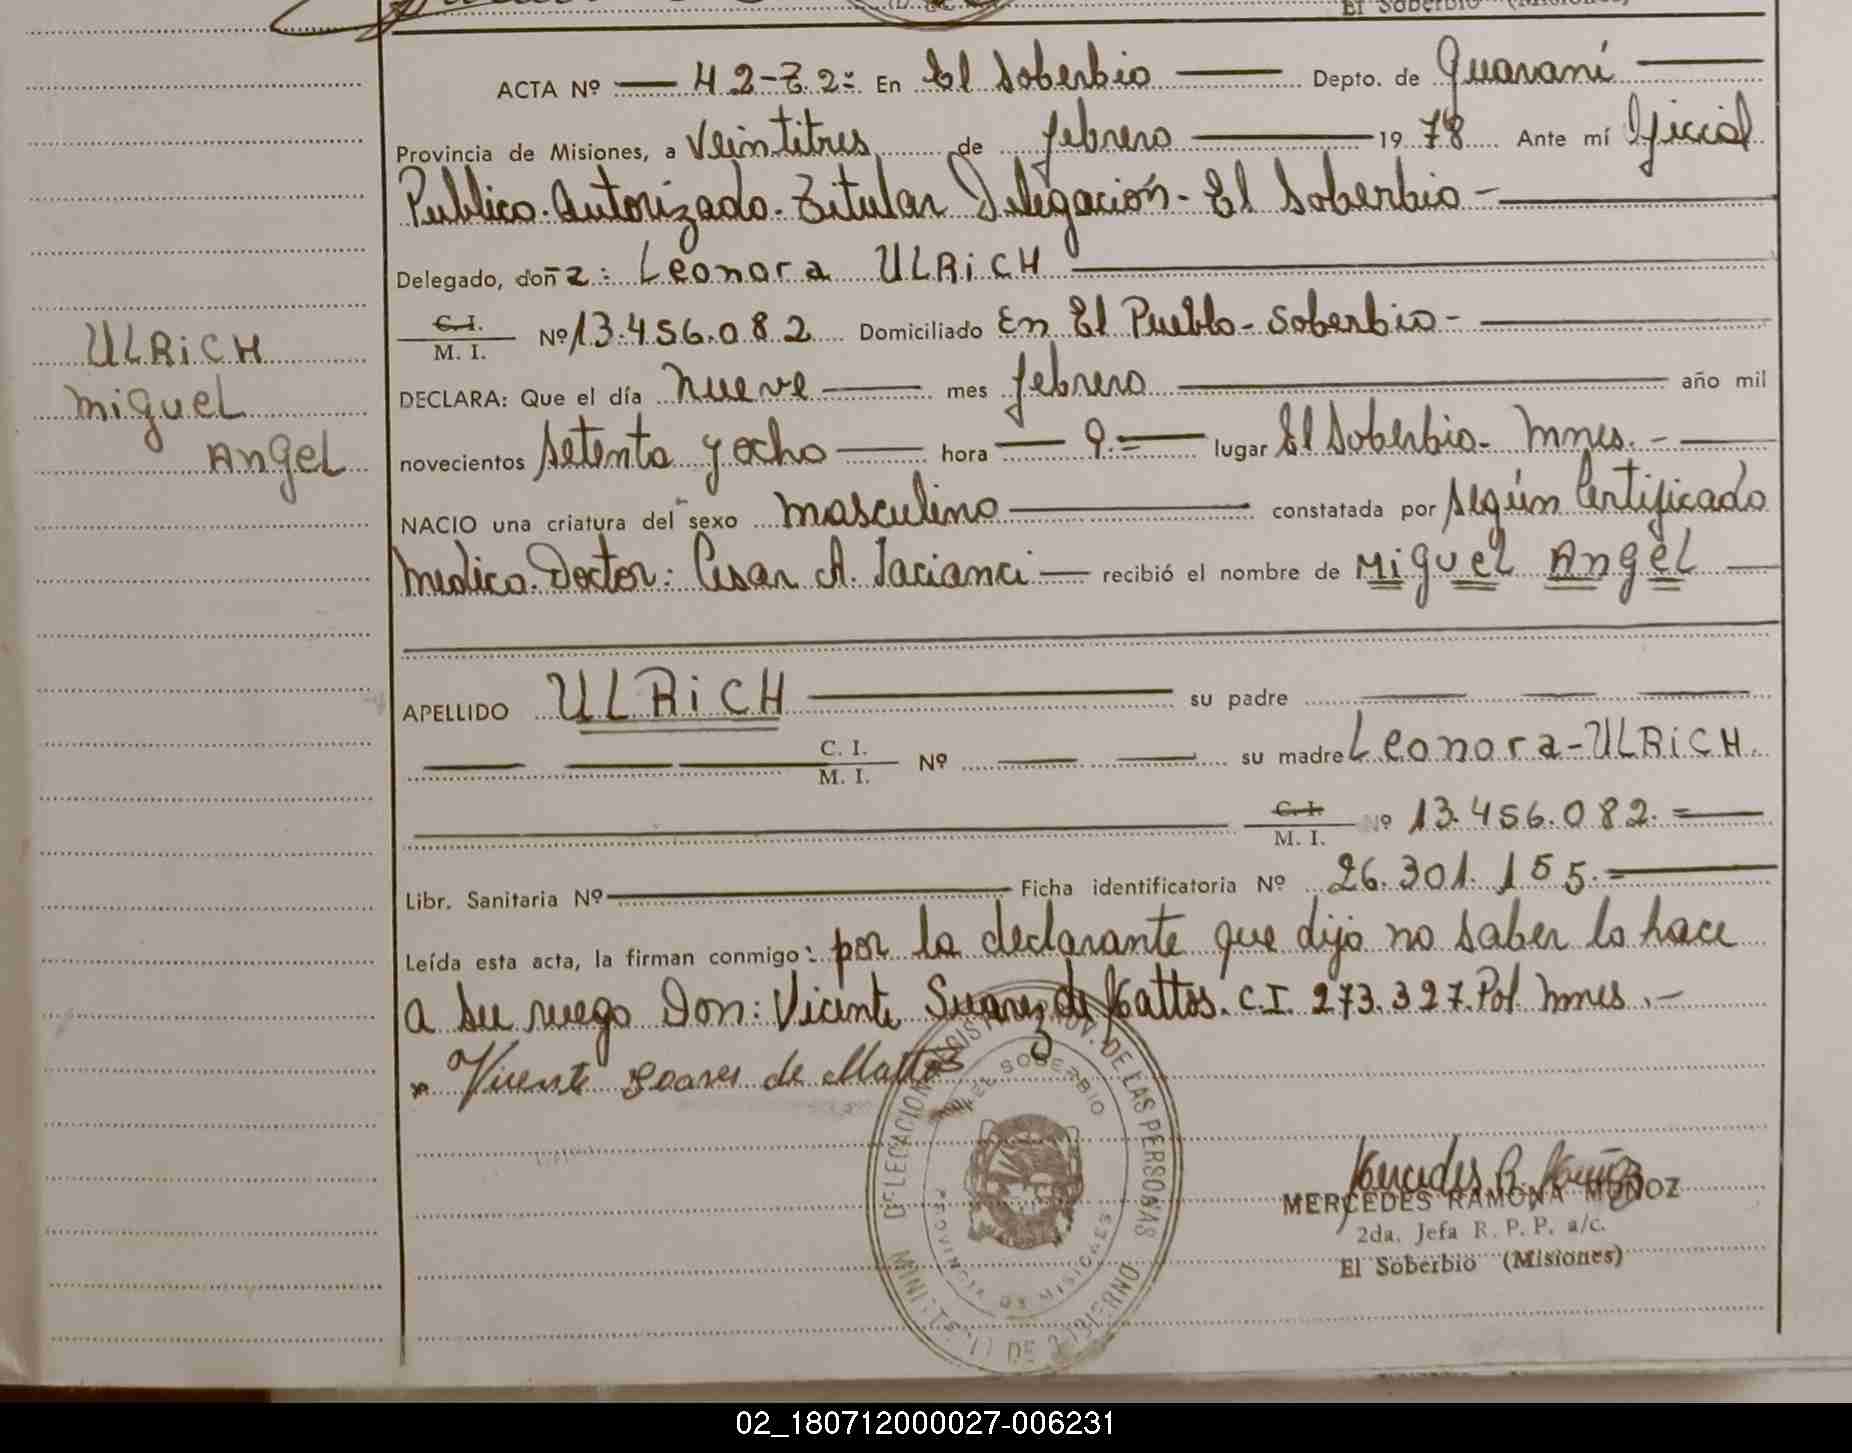 El Soberbio (Misiones)
ACTA Nº — 42-T.2: En El Soberbio — Depto. de Guaraní —
Provincia de Misiones, a Veintitres de febrero — 19 78 Ante mí Oficial
Publico. Autorizado. Titular Delegación - El Soberbio -
Delegado, doña: Leonora ULRiCH
C. I.
M. I. Nº 13.456.082 Domiciliado En El Pueblo - Soberbio -
ULRiCH
DECLARA: Que el día nueve — mes febrero — año mil
miguel
novecientos setenta y ocho — hora — 9.= — lugar El Soberbio - Mnes. -
Angel
NACIO una criatura del sexo masculino — constatada por según Certificado
Medico. Doctor: Cesar A. Jacianci — recibió el nombre de Miguel Angel —
APELLIDO ULRiCH — su padre — — —
— — — C. I.
M. I. Nº — — su madre Leonora - ULRiCH
C. I.
M. I. Nº 13.456.082. =
Libr. Sanitaria Nº — Ficha identificatoria Nº 26.301.155. =
Leída esta acta, la firman conmigo: por la declarante que dijo no saber lo hace
a su ruego Don: Vicente Suarez de Mattos. C.I. 273.327. Pol. Mnes. -
Vicente Soares de Mattos
DELEGACION REGISTRO PROV. DE LAS PERSONAS
EL SOBERBIO
PROVINCIA DE MISIONES
MINISTERIO DE GOBIERNO
Mercedes R. Muñoz
MERCEDES RAMONA MUÑOZ
2da. Jefa R. P. P. a/c.
El Soberbio (Misiones)
02_180712000027-006231